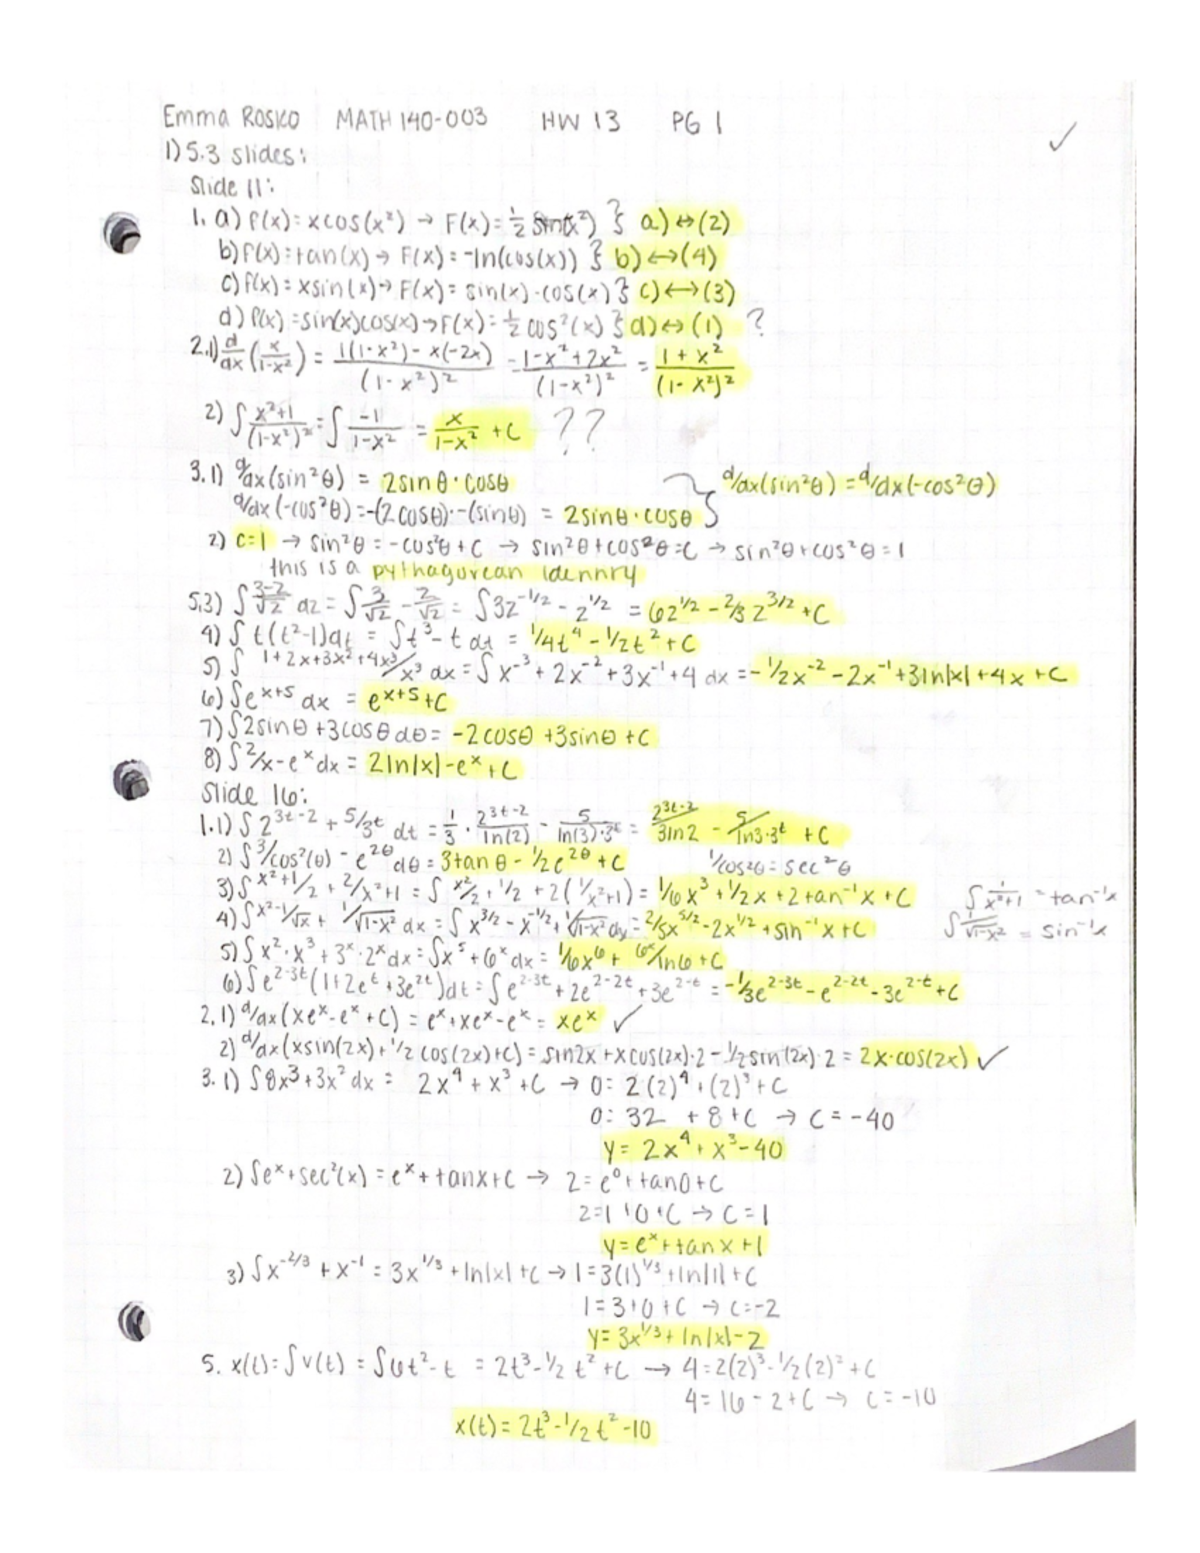 Emma Rosko MATH 140-003 HW 13 PG 1
✓
1) 5.3 slides:
Slide 11:
1. a) f(x)= xcos(x²) → F(x)= ½ sin(x²) } a) ↔ (2)
b) f(x)= tan(x) → F(x)= -ln(cos(x)) } b) ↔ (4)
c) f(x)= xsin(x) → F(x)= sin(x)-cos(x) } c) ↔ (3)
d) f(x)=sin(x)cos(x) → F(x)= ½ cos²(x) } d) ↔ (1) ?
2.1) d/dx (x/1-x²) = 1(1-x²)-x(-2x)/(1-x²)² = 1-x²+2x²/(1-x²)² = 1+x²/(1-x²)²
2) ∫ x²+1/(1-x²)² = ∫ -1/1-x² = x/1-x² + C ??
3.1) d/dx (sin²θ) = 2sinθ·cosθ } d/dx(sin²θ) = d/dx(-cos²θ)
d/dx (-cos²θ) =-(2cosθ)·-(sinθ) = 2sinθ·cosθ
2) c=1 → sin²θ = -cos²θ + C → sin²θ + cos²θ = C → sin²θ + cos²θ = 1
this is a pythagorean idennry
5.3) ∫ 3-z/√z dz = ∫ 3/√z - z/√z = ∫ 3z^-1/2 - z^1/2 = 6z^1/2 - 2/3 z^3/2 + C
4) ∫ t(t²-1)dt = ∫ t³-t dt = 1/4t⁴ - 1/2t² + C
5) ∫ 1+2x+3x²+4x³/x³ dx = ∫ x^-3 + 2x^-2 + 3x^-1 + 4 dx = -1/2x^-2 - 2x^-1 + 3ln|x| + 4x + C
6) ∫ e^x+5 dx = e^x+5 + C
7) ∫ 2sinθ + 3cosθ dθ = -2cosθ + 3sinθ + C
8) ∫ 2/x - e^x dx = 2ln|x| - e^x + C
Slide 16:
1.1) ∫ 2^3t-2 + 5/3^t dt = 1/3 · 2^3t-2/ln(2) - 5/ln(3)·3^t = 2^3t-2/3ln2 - 5/ln3·3^t + C
2) ∫ 3/cos²(θ) - e^2θ dθ = 3tanθ - 1/2e^2θ + C 1/cos²θ = sec²θ
3) ∫ x²+1/2 + 2/x²+1 = ∫ x²/2 + 1/2 + 2(1/x²+1) = 1/6x³ + 1/2x + 2tan^-1x + C ∫ 1/x²+1 = tan^-1x
4) ∫ x²-1/√x + 1/√1-x² dx = ∫ x^3/2 - x^-1/2 + 1/√1-x² dx = 2/5x^5/2 - 2x^1/2 + sin^-1x + C ∫ 1/√1-x² = sin^-1x
5) ∫ x²·x³ + 3^x·2^x dx = ∫x⁵ + 6^x dx = 1/6x⁶ + 6^x/ln6 + C
6) ∫ e^2-3t(1+2e^t+3e^2t)dt = ∫ e^2-3t + 2e^2-2t + 3e^2-t = -1/3e^2-3t - e^2-2t - 3e^2-t + C
2.1) d/dx (xe^x - e^x + C) = e^x + xe^x - e^x = xe^x ✓
2) d/dx (xsin(2x) + 1/2 cos(2x) + C) = sin2x + xcos(2x)·2 - 1/2sin(2x)·2 = 2x·cos(2x) ✓
3. 1) ∫8x³+3x² dx = 2x⁴ + x³ + C → 0= 2(2)⁴ + (2)³ + C
0= 32 + 8 + C → C = -40
y= 2x⁴ + x³ - 40
2) ∫e^x + sec²(x) = e^x + tanx + C → 2= e⁰ + tan0 + C
2=1+0+C → C=1
y= e^x + tanx + 1
3) ∫x^-2/3 + x^-1 = 3x^1/3 + ln|x| + C → 1=3(1)^1/3 + ln|1| + C
1=3+0+C → C=-2
y= 3x^1/3 + ln|x| - 2
5. x(t)= ∫v(t) = ∫6t²-t = 2t³ - 1/2 t² + C → 4=2(2)³ - 1/2(2)² + C
4= 16 - 2 + C → C= -10
x(t)= 2t³ - 1/2 t² - 10